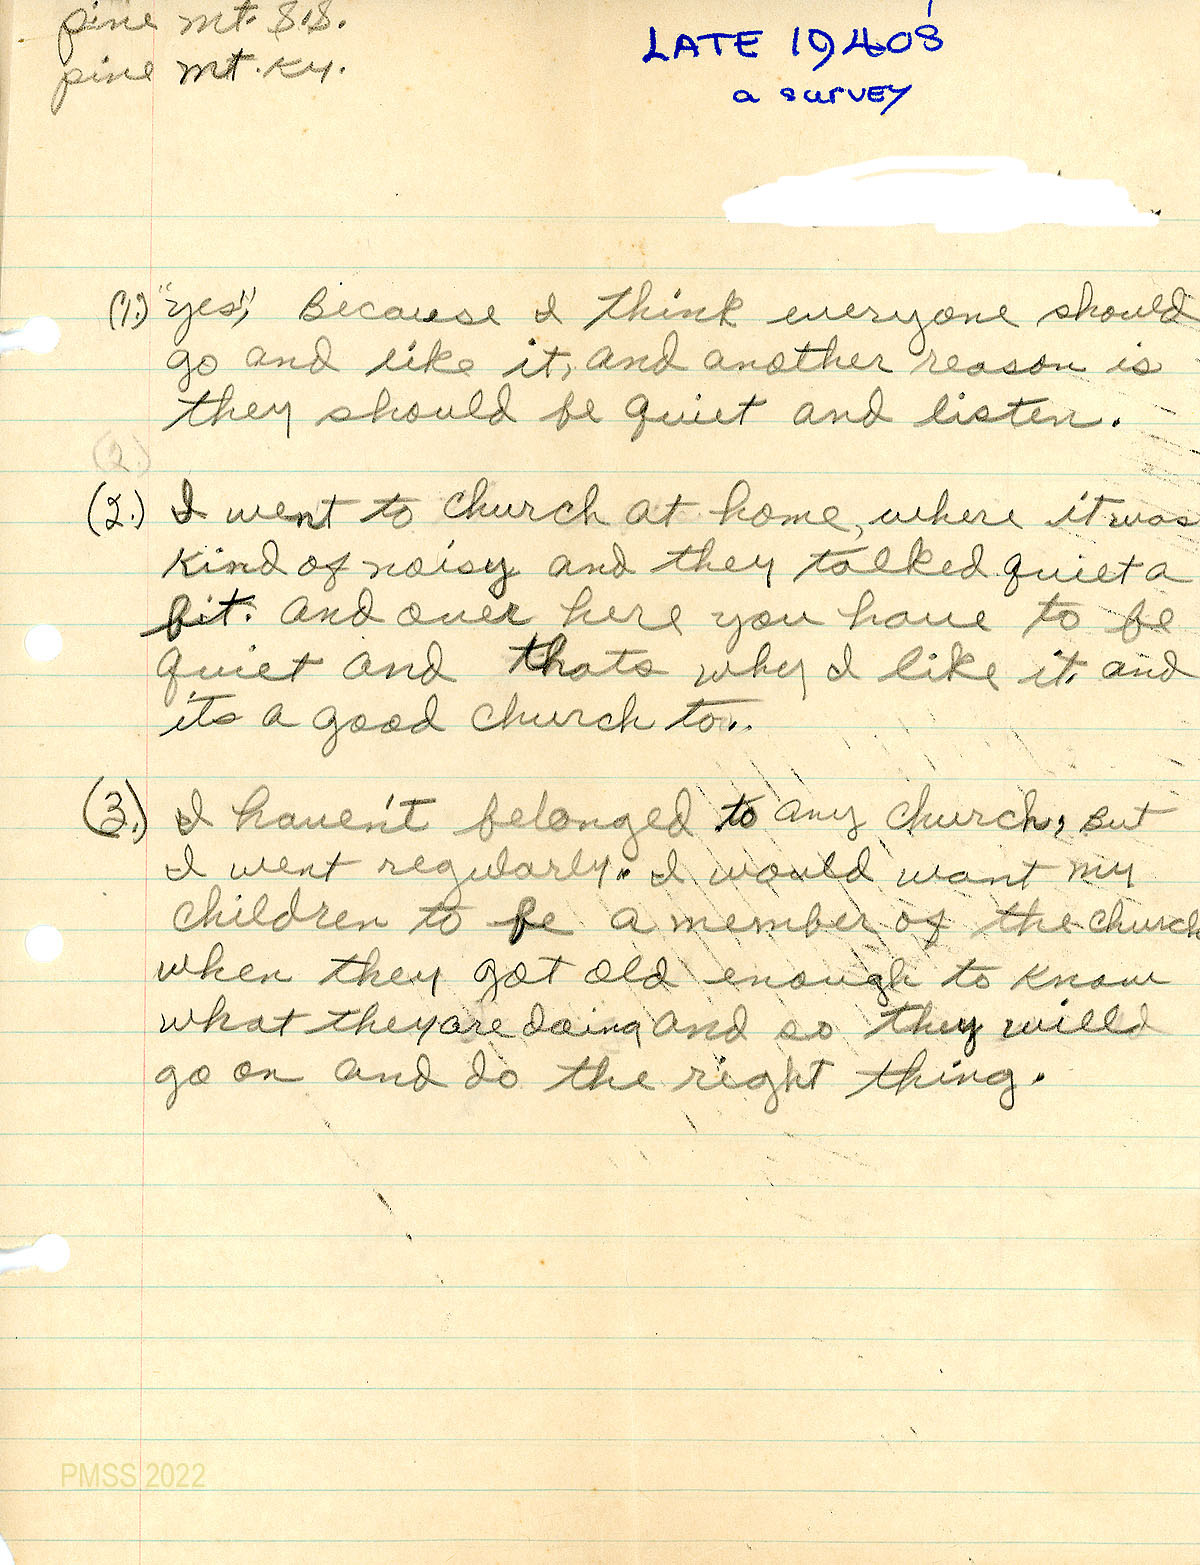 pine mt. S.S.
pine mt. Ky.
LATE 1940s
a survey
(1.) "yes", Because I think everyone should
go and like it, and another reason is
they should be quiet and listen.
(2.)
(2.) I went to church at home, where it was
kind of noisy and they talked quiet a
bit. and over here you have to be
quiet and thats why I like it. and
its a good church to..
(3.) I haven't belonged to any church, But
I went regularly. I would want my
children to be a member of the church
when they got old enough to know
what they are doing and so they willd
go on and do the right thing.
PMSS 2022